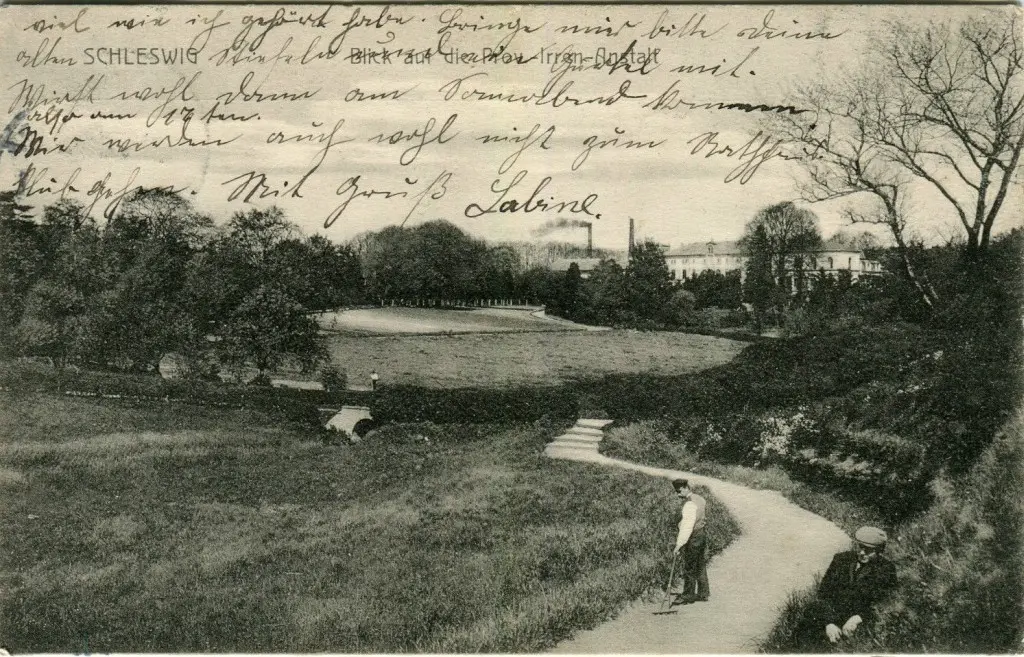 viel wie ich gehört habe. Bringe mir bitte Deine
alten Stiefeln und den Gürtel mit.
SCHLESWIG Blick auf die Prov. Irren-Anstalt
Wirst wohl dann am Sonnabend kommen
also am 17ten.
Wir werden auch wohl nicht zum
gehen. Mit Gruß Sabine.